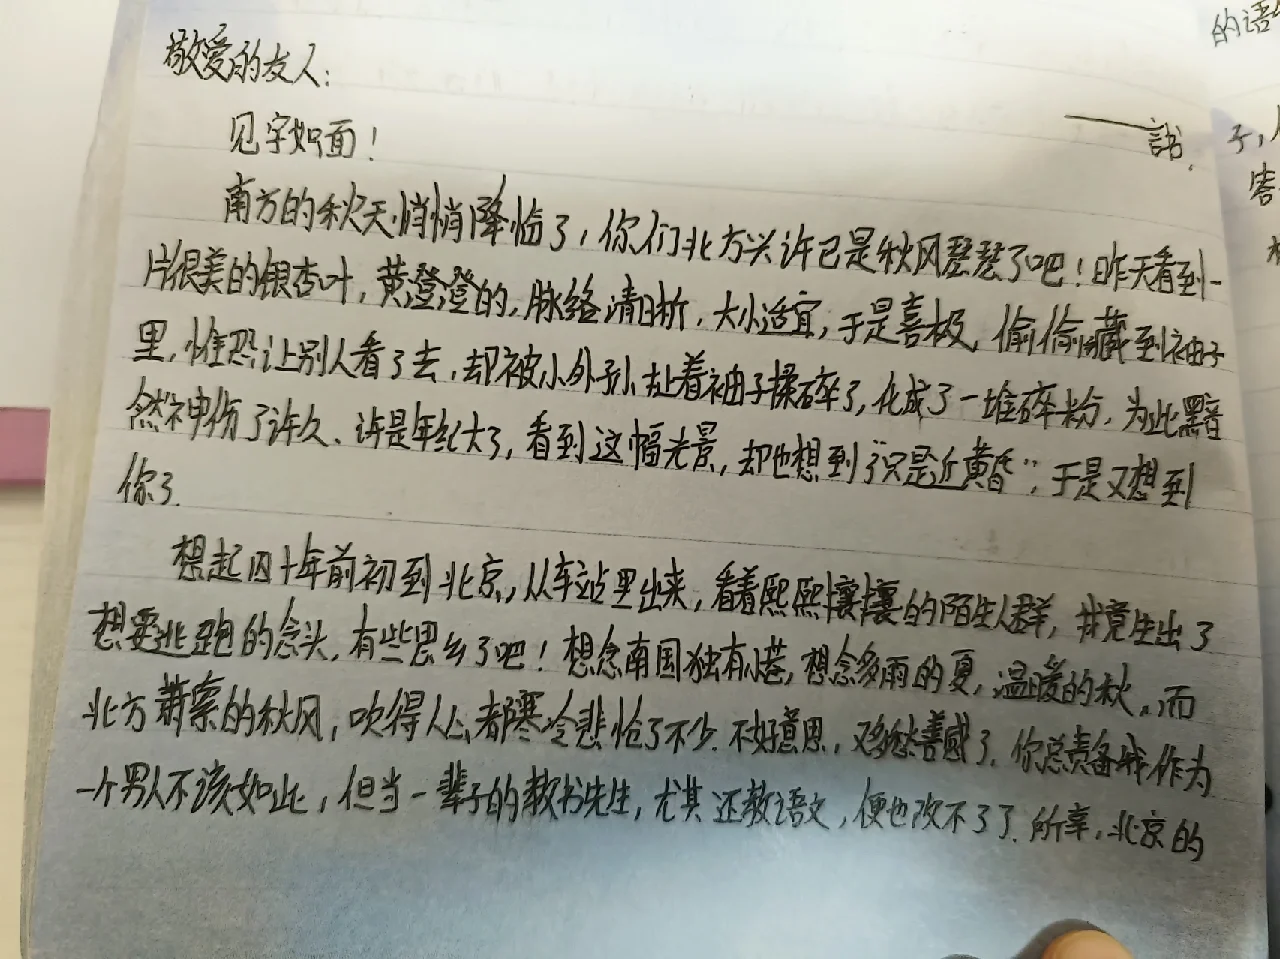 敬爱的友人：
见字如面！
南方的秋天悄悄降临了，你们北方兴许已是秋风瑟瑟了吧！昨天看到一
片很美的银杏叶，黄澄澄的，脉络清晰，大小适宜，于是喜极，偷偷藏到袖子
里，惟恐让别人看了去，却被小外孙扯着袖子揉碎了，化成了一堆碎粉，为此黯
然神伤了许久、许是年纪大了，看到这幅光景，却也想到了“只是近黄昏”，于是又想到
你了．
想起四十年前初到北京，从车站里出来，看着熙熙攘攘的陌生人群，我竟生出了
想要逃跑的念头，有些思乡了吧！想念南国独有小巷，想念多雨的夏，温暖的秋。而
北方萧索的秋风，吹得人心都寒冷悲怆了不少．不好意思，又多愁善感了．你总责备我作为
一个男人不该如此，但当一辈子的教书先生，尤其还教语文，便也改不了了．所幸，北京的
的语
子，
害